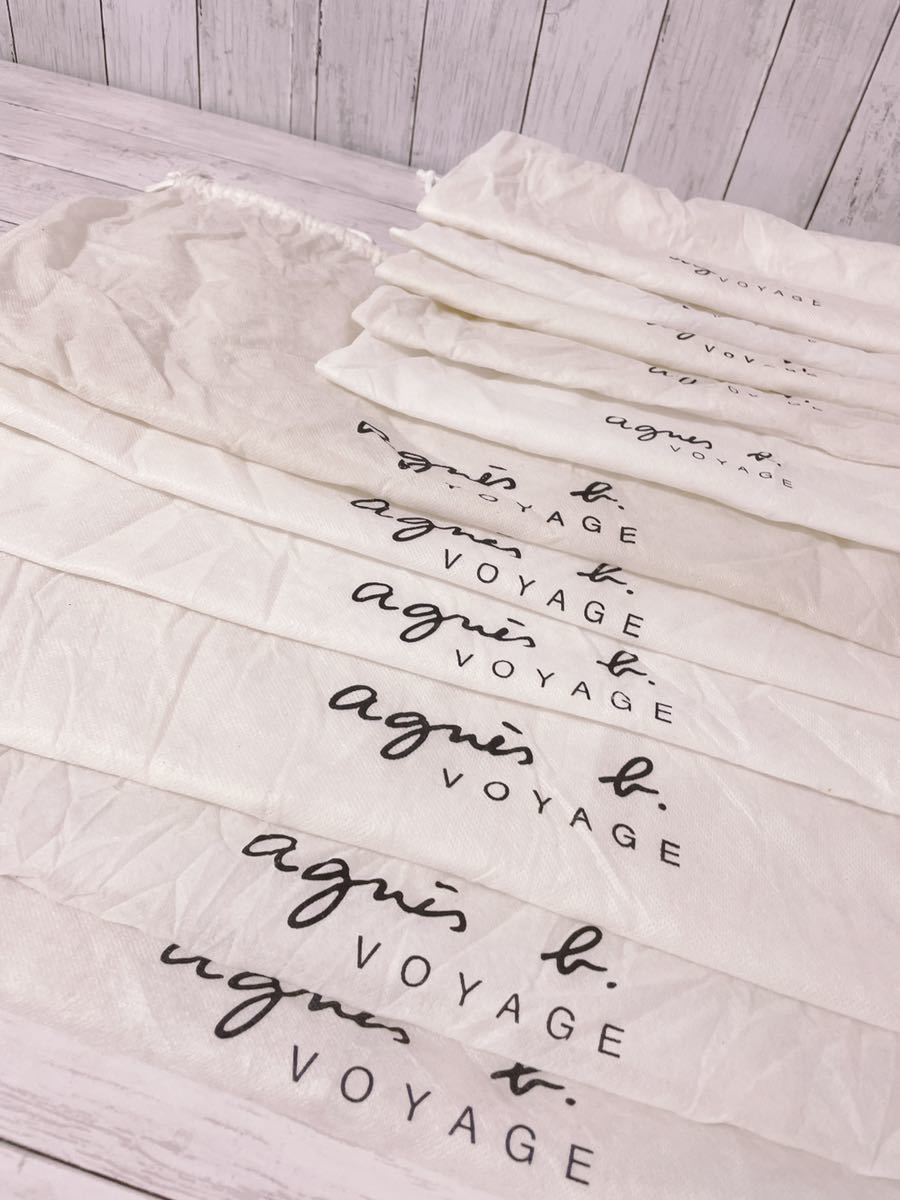 VOYAGE
agnès b.
VOYAGE
agnès b.
VOYAGE
agnès b.
VOYAGE
agnès b.
VOYAGE
agnès b.
VOYAGE
agnès b.
VOYAGE
agnès b.
VOYAGE